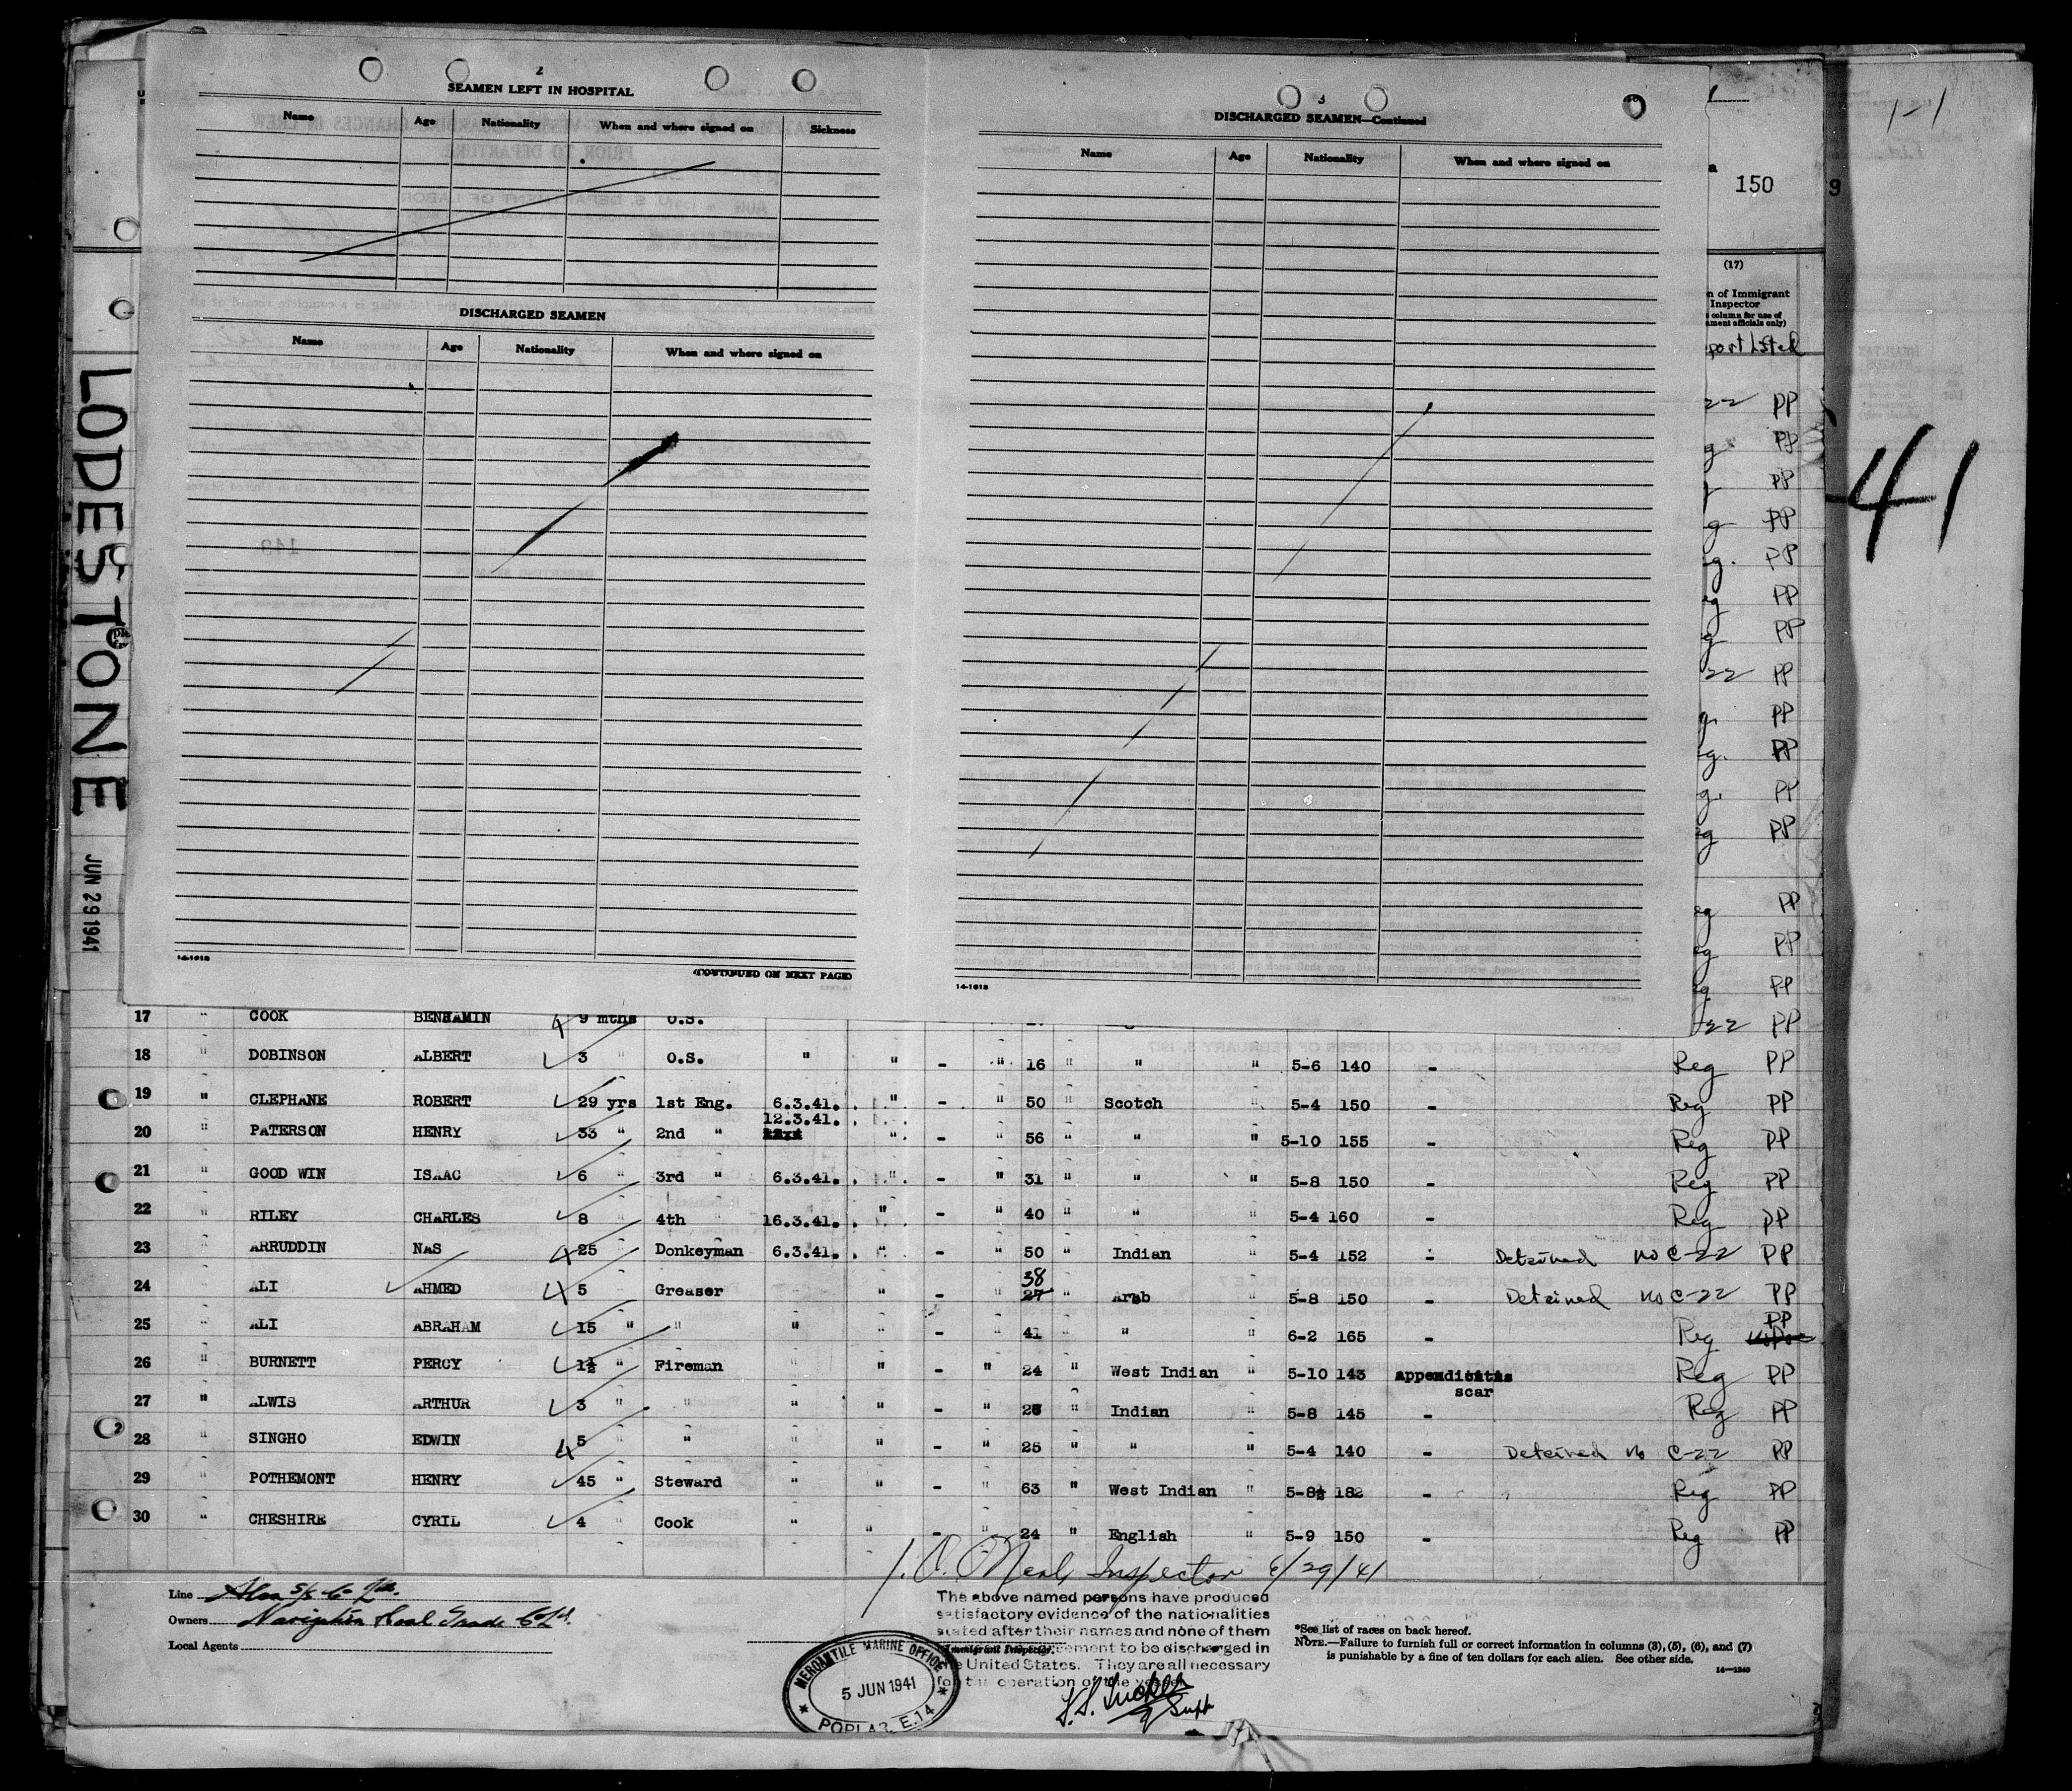 LODESTONE
JUN 29 1941
2
SEAMEN LEFT IN HOSPITAL
Name Age Nationality When and where signed on Sickness
DISCHARGED SEAMEN
Name Age Nationality When and where signed on
14-1618
(CONTINUED ON NEXT PAGE)
3
DISCHARGED SEAMEN—Continued
Name Age Nationality When and where signed on
14-1618
150
9
1-1
41
(17)
n of Immigrant
Inspector
column for use of
ment officials only)
port Listed
22 PP
g PP
PP
g PP
g. PP
eg PP
g PP
22 PP
g. PP
g. PP
g. PP
g PP
eg PP
eg PP
g PP
22 PP
17 " COOK BENHAMIN 9 mths O.S.
18 " DOBINSON ALBERT 3 " O.S. " " - " 16 " " " 5-6 140 - Reg PP
19 " CLEPHANE ROBERT 29 yrs 1st Eng. 6.3.41. " - " 50 " Scotch " 5-4 150 - Reg PP
12.3.41.
20 " PATERSON HENRY 33 " 2nd " " - " 56 " " " 5-10 155 - Reg PP
21 " GOOD WIN ISAAC 6 " 3rd " 6.3.41. " - " 31 " " " 5-8 150 - Reg PP
22 " RILEY CHARLES 8 " 4th " 16.3.41. " - " 40 " " " 5-4 160 - Reg PP
23 " ARRUDDIN NAS 25 " Donkeyman 6.3.41. " - " 50 " Indian " 5-4 152 - Detained no C-22 PP
38
24 " ALI AHMED 5 " Greaser " " - " 27 " Arab " 5-8 150 - Detained no C-22 PP
25 " ALI ABRAHAM 15 " " " " - " 41 " " " 6-2 165 - Reg PP
26 " BURNETT PERCY 1½ " Fireman " " - " 24 " West Indian " 5-10 143 appendicitis scar Reg PP
27 " ALWIS ARTHUR 3 " " " " - " 26 " Indian " 5-8 145 - Reg PP
28 " SINGHO EDWIN 5 " " " " - " 25 " " " 5-4 140 - Detained no C-22 PP
29 " POTHEMONT HENRY 45 " Steward " " - " 63 " West Indian " 5-8½ 182 - Reg PP
30 " CHESHIRE CYRIL 4 " Cook " " - " 24 " English " 5-9 150 - Reg PP
J. O. Neal, Inspector 6/29/41
Line Alva S/S Co Ltd.
Owners Navigation & Coal Trade Co Ld.
Local Agents
The above named persons have produced
satisfactory evidence of the nationalities
stated after their names and none of them
Immigrant Inspector.
ement to be discharged in
the United States. They are all necessary
for the operation of the vessel
Supt
MERCANTILE MARINE OFFICE
5 JUN 1941
POPLAR. E.14
*See list of races on back hereof.
NOTE.—Failure to furnish full or correct information in columns (3), (5), (6), and (7)
is punishable by a fine of ten dollars for each alien. See other side.
14—1240